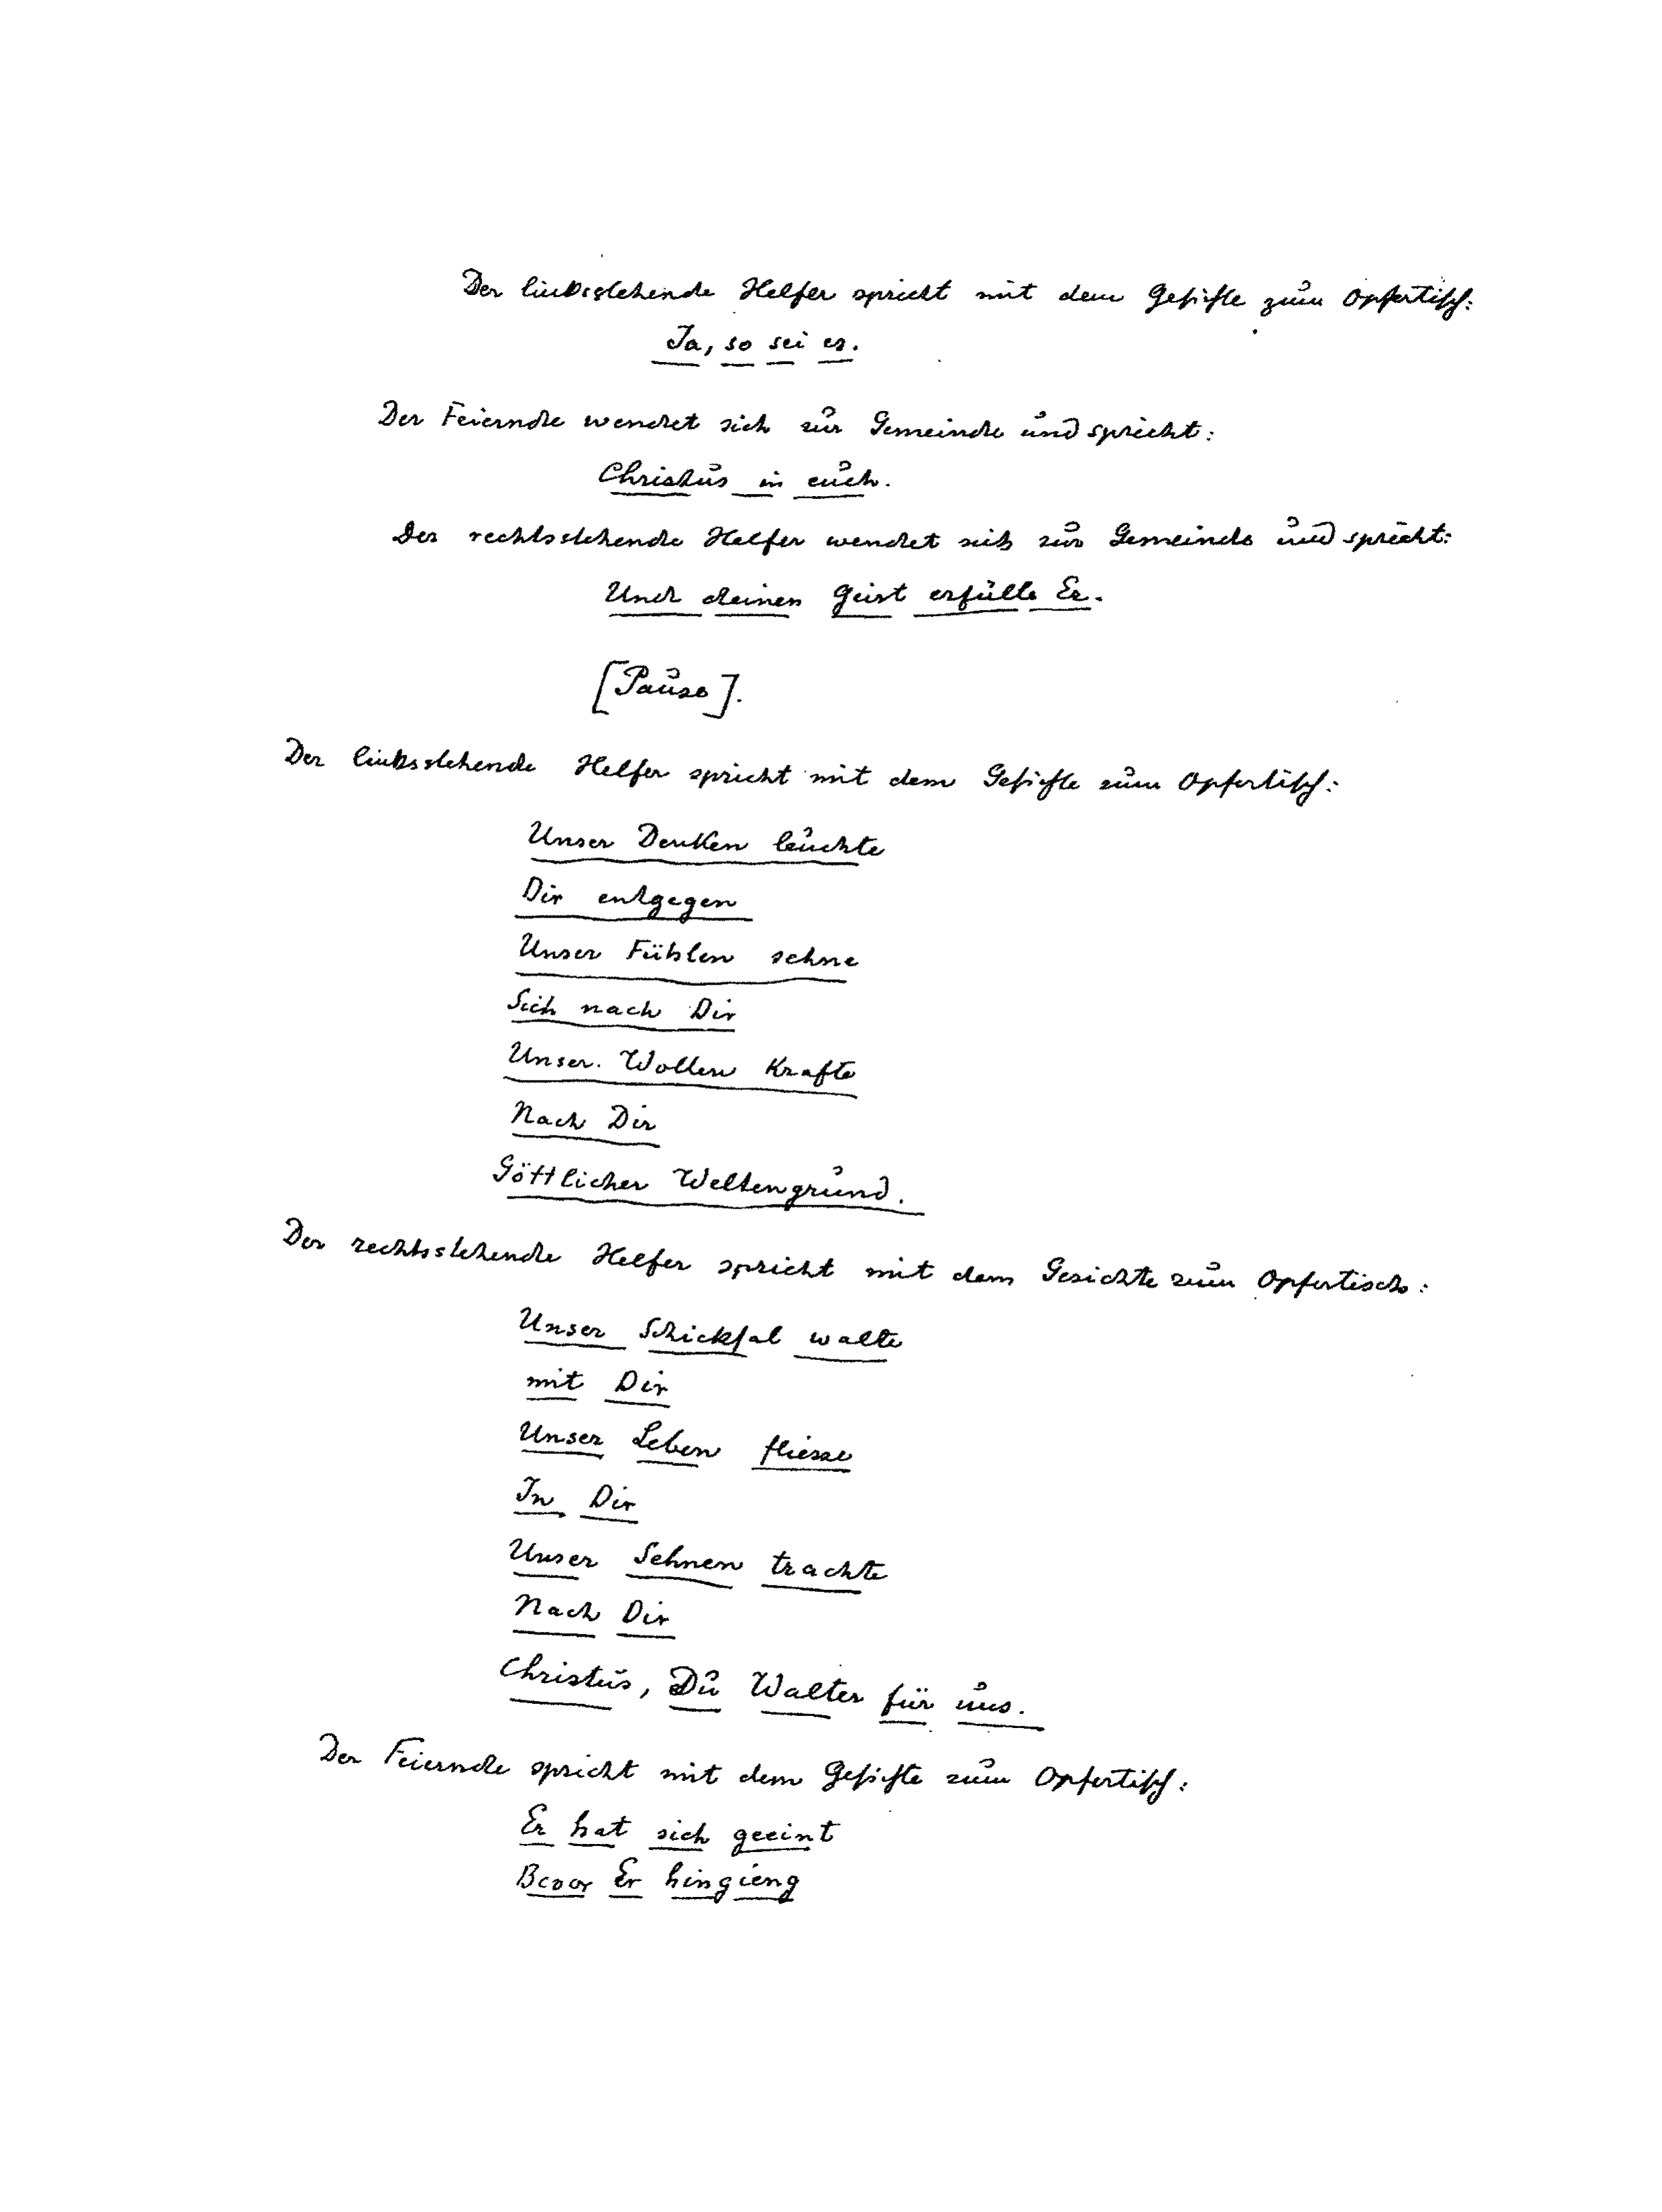 Der linksstehende Helfer spricht mit dem Gesichte zum Opfertisch:
Ja, so sei es.
Der Feiernde wendet sich zur Gemeinde und spricht:
Christus in euch.
Der rechtsstehende Helfer wendet sich zur Gemeinde und spricht:
Und deinen Geist erfülle Er.
[Pause].
Der linksstehende Helfer spricht mit dem Gesichte zum Opfertisch:
Unser Denken leuchte
Dir entgegen
Unser Fühlen sehne
Sich nach Dir
Unser Wollen Krafte
Nach Dir
Göttlicher Weltengrund.
Der rechtsstehende Helfer spricht mit dem Gesichte zum Opfertisch:
Unser Schicksal walte
mit Dir
Unser Leben fliesse
In Dir
Unser Sehnen trachte
Nach Dir
Christus, Du Walter für uns.
Der Feiernde spricht mit dem Gesichte zum Opfertisch:
Er hat sich geeint
Bevor Er hingieng